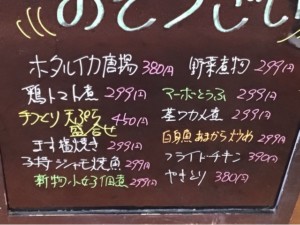 おそうざい
ホタルイカ唐揚 380円
野菜煮物 299円
鴨トマト煮 299円
マーボーとうふ 299円
手づくり 天ぷら 盛合せ 450円
茎ワカメ煮 299円
玉子焼き 299円
白身魚あまから炒め 299円
子持シシャモ焼魚 299円
フライドチキン 390円
新物小女子佃煮 299円
やきとり 380円